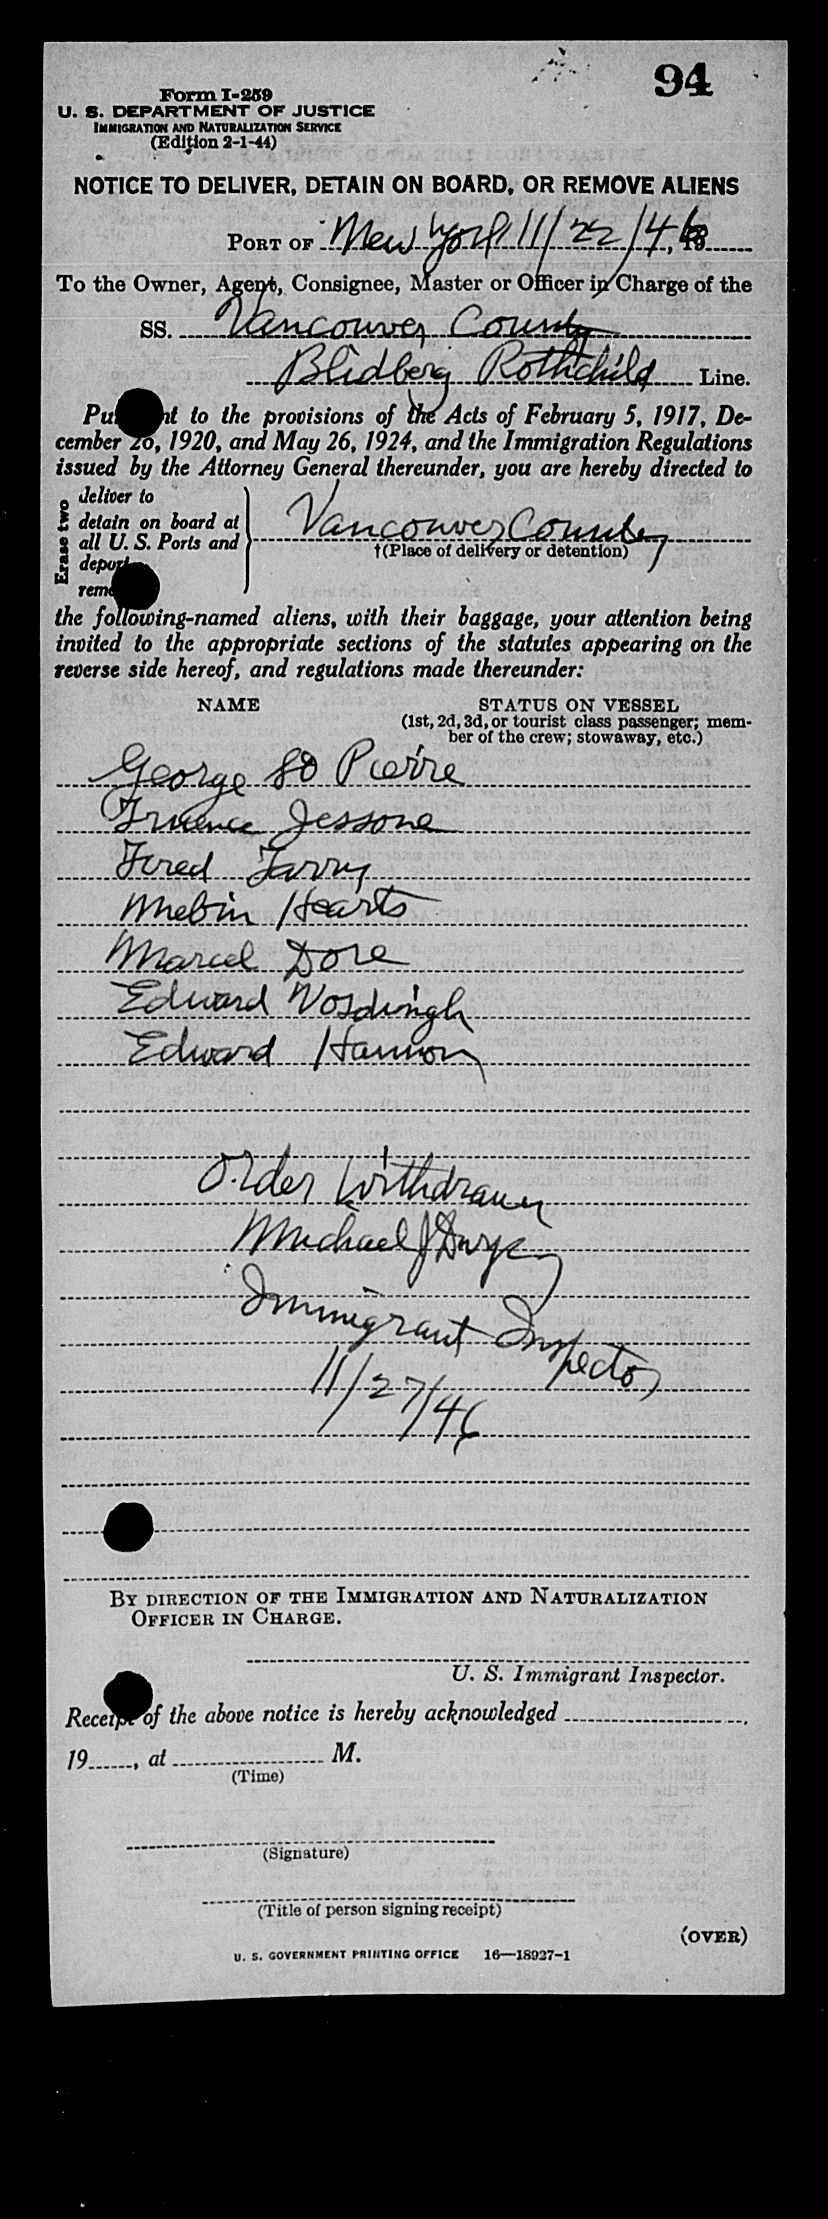 94
Form I-259
U. S. DEPARTMENT OF JUSTICE
IMMIGRATION AND NATURALIZATION SERVICE
(Edition 2-1-44)
NOTICE TO DELIVER, DETAIN ON BOARD, OR REMOVE ALIENS
PORT OF New York 11/22/46, 19
To the Owner, Agent, Consignee, Master or Officer in Charge of the
SS. Vancouver County
Blidberg Rothchild Line.
Pu nt to the provisions of the Acts of February 5, 1917, De-
cember 26, 1920, and May 26, 1924, and the Immigration Regulations
issued by the Attorney General thereunder, you are hereby directed to
Erase two
deliver to
detain on board at
all U. S. Ports and
deport
remo
Vancouver County
†(Place of delivery or detention)
the following-named aliens, with their baggage, your attention being
invited to the appropriate sections of the statutes appearing on the
reverse side hereof, and regulations made thereunder:
NAME STATUS ON VESSEL
(1st, 2d, 3d, or tourist class passenger; mem-
ber of the crew; stowaway, etc.)
George St Pierre
Jessone
Fred
Hearts
Marcel Dore
Edward
Edward Hannon
Order Withdrawn
Michael J
Immigrant Inspector
11/27/46
BY DIRECTION OF THE IMMIGRATION AND NATURALIZATION
OFFICER IN CHARGE.
U. S. Immigrant Inspector.
Receipt of the above notice is hereby acknowledged
19 , at M.
(Time)
(Signature)
(Title of person signing receipt)
(OVER)
U. S. GOVERNMENT PRINTING OFFICE 16—18927-1